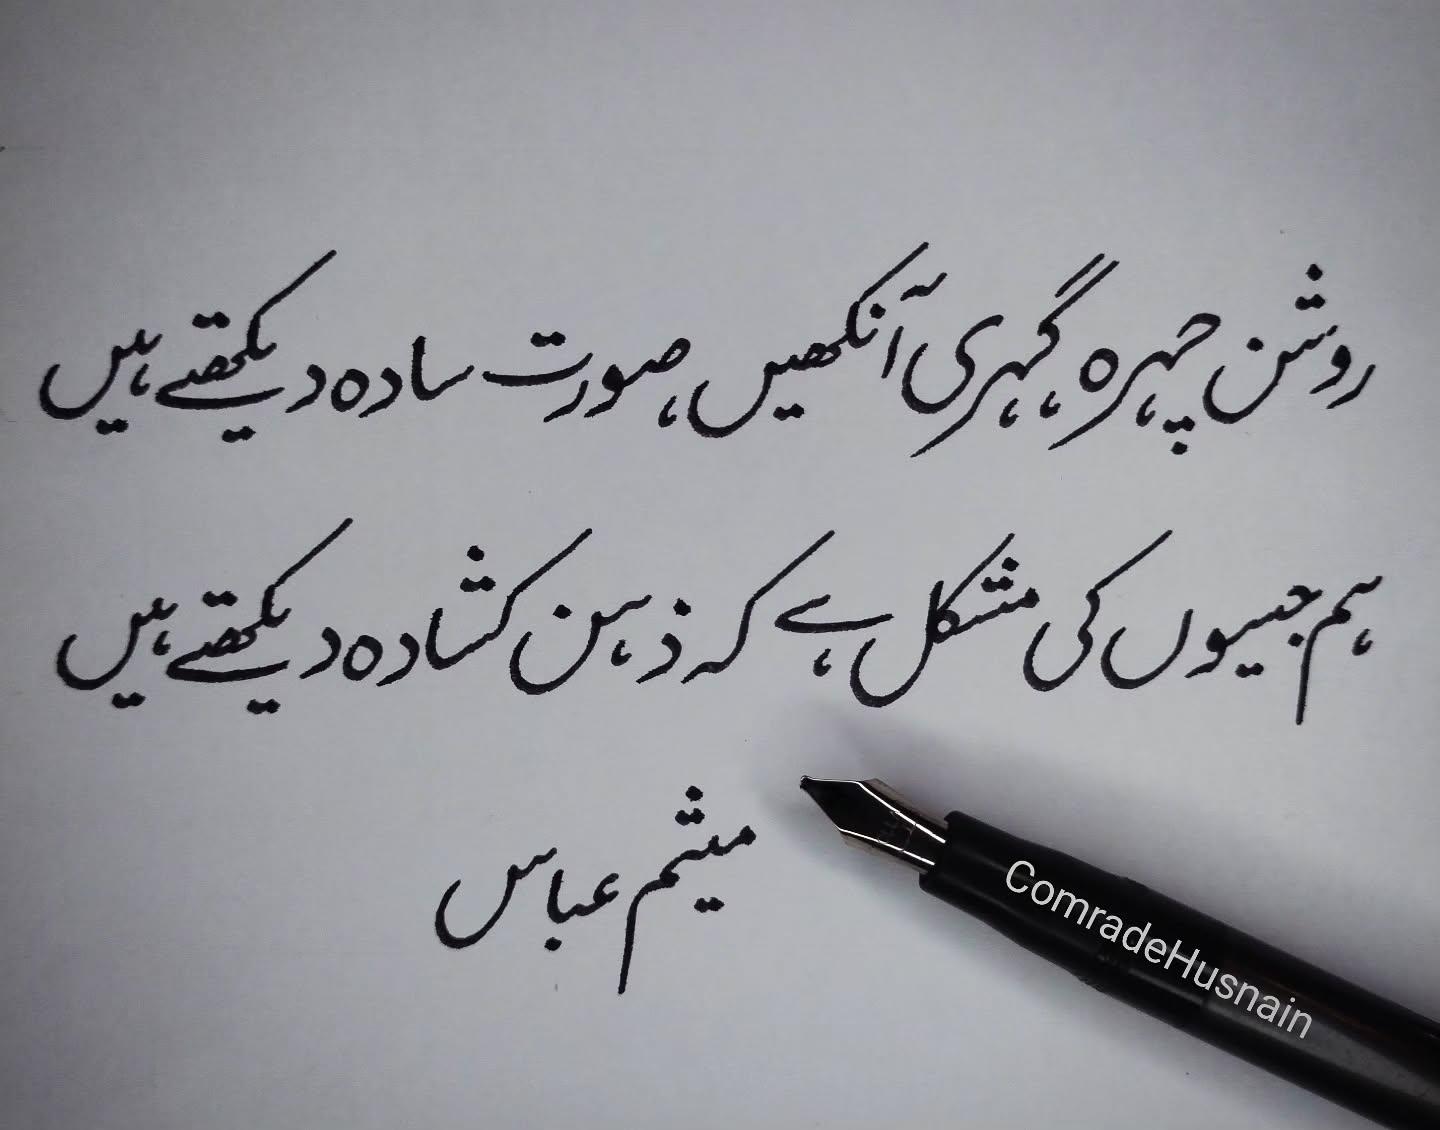 روشن چہرہ، گہری آنکھیں، صورت سادہ دیکھتے ہیں
ہم جیسوں کی مشکل ہے کہ ذہن کشادہ دیکھتے ہیں
میثم عباس
ComradeHusnain